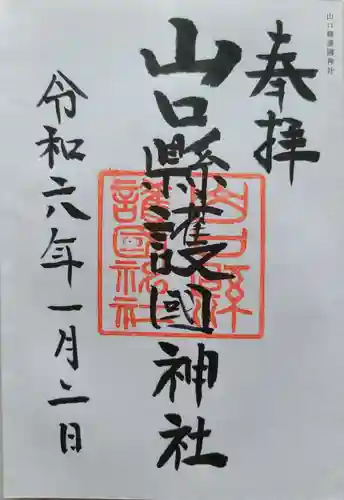 山口縣護國神社
奉拝
山口縣護國神社
山口縣
護國神社
令和六年一月二日